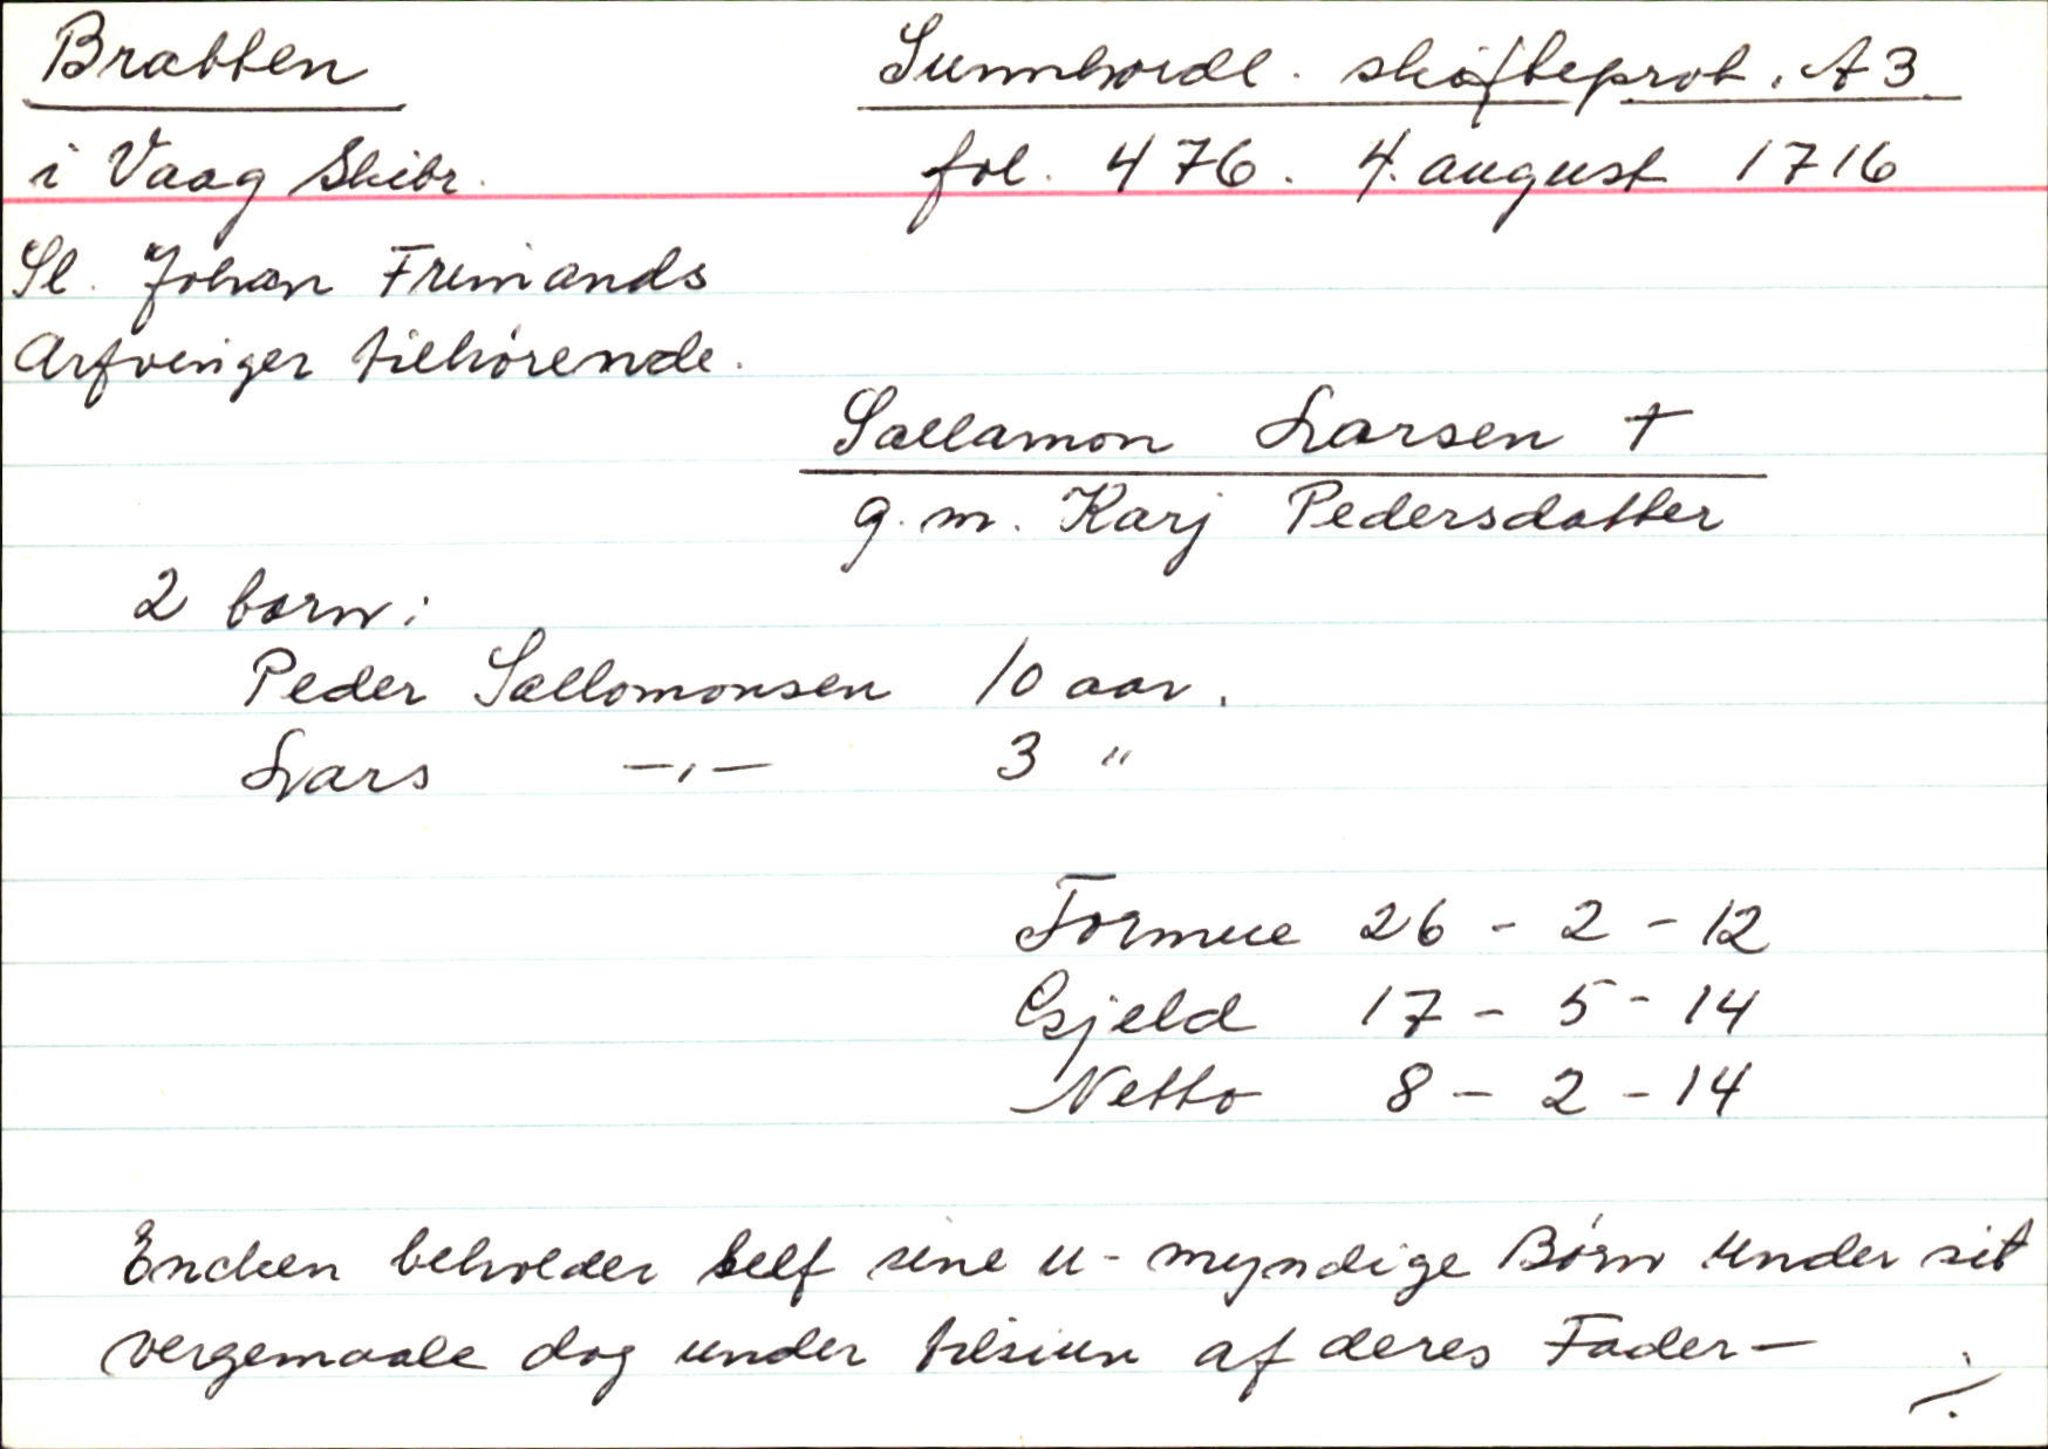 Bratten
Sunnhordl. skifteprot. A 3
i Vaag Skibr.
fol. 476. 4. august 1716
Sl. Johan Frimands
Arfvinger tilhörende.
Sallamon Larsen †
g. m. Karj Pedersdatter
2 born:
Peder Sallomonsen 10 aar.
Lars —„— 3 "
Formue 26 - 2 - 12
Gjeld 17 - 5 - 14
Netto 8 - 2 - 14
Encken beholder self sine u-myndige Börn under sit
vergemaale dog under tilsiun af deres Fader—
./.